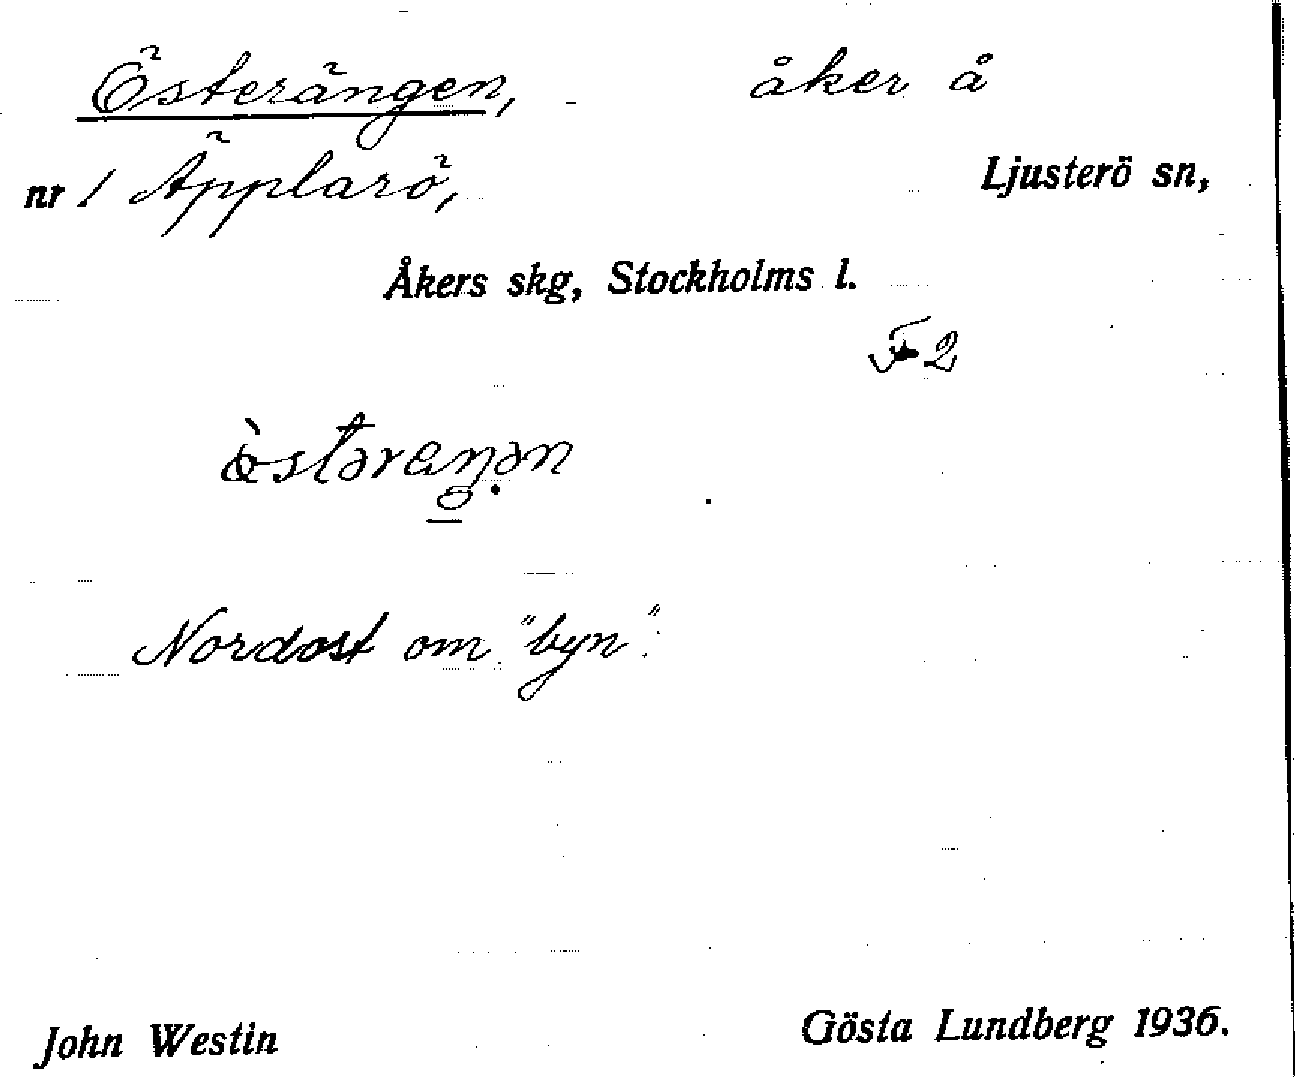 Österängen, åker å
nr 1 Äpplarö, Ljusterö sn,
Åkers skg, Stockholms l.
F 2
Nordost om "byn".
John Westin Gösta Lundberg 1936.